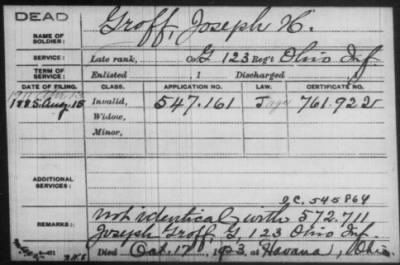 DEAD
NAME OF SOLDIER: Groff, Joseph H.
SERVICE: Late rank, Co. G 123 Reg't Ohio Inf
TERM OF SERVICE: Enlisted , 1 Discharged
DATE OF FILING. CLASS. APPLICATION NO. LAW. CERTIFICATE NO.
1885 Aug. 15 Invalid, 547.161 761.922
Widow,
Minor,
ADDITIONAL SERVICES:
I.C. 545864
REMARKS: not identical with 572.711
Joseph Groff, G, 123 Ohio Inf.
Died Oct. 17 1923 at Havana, Ohio.